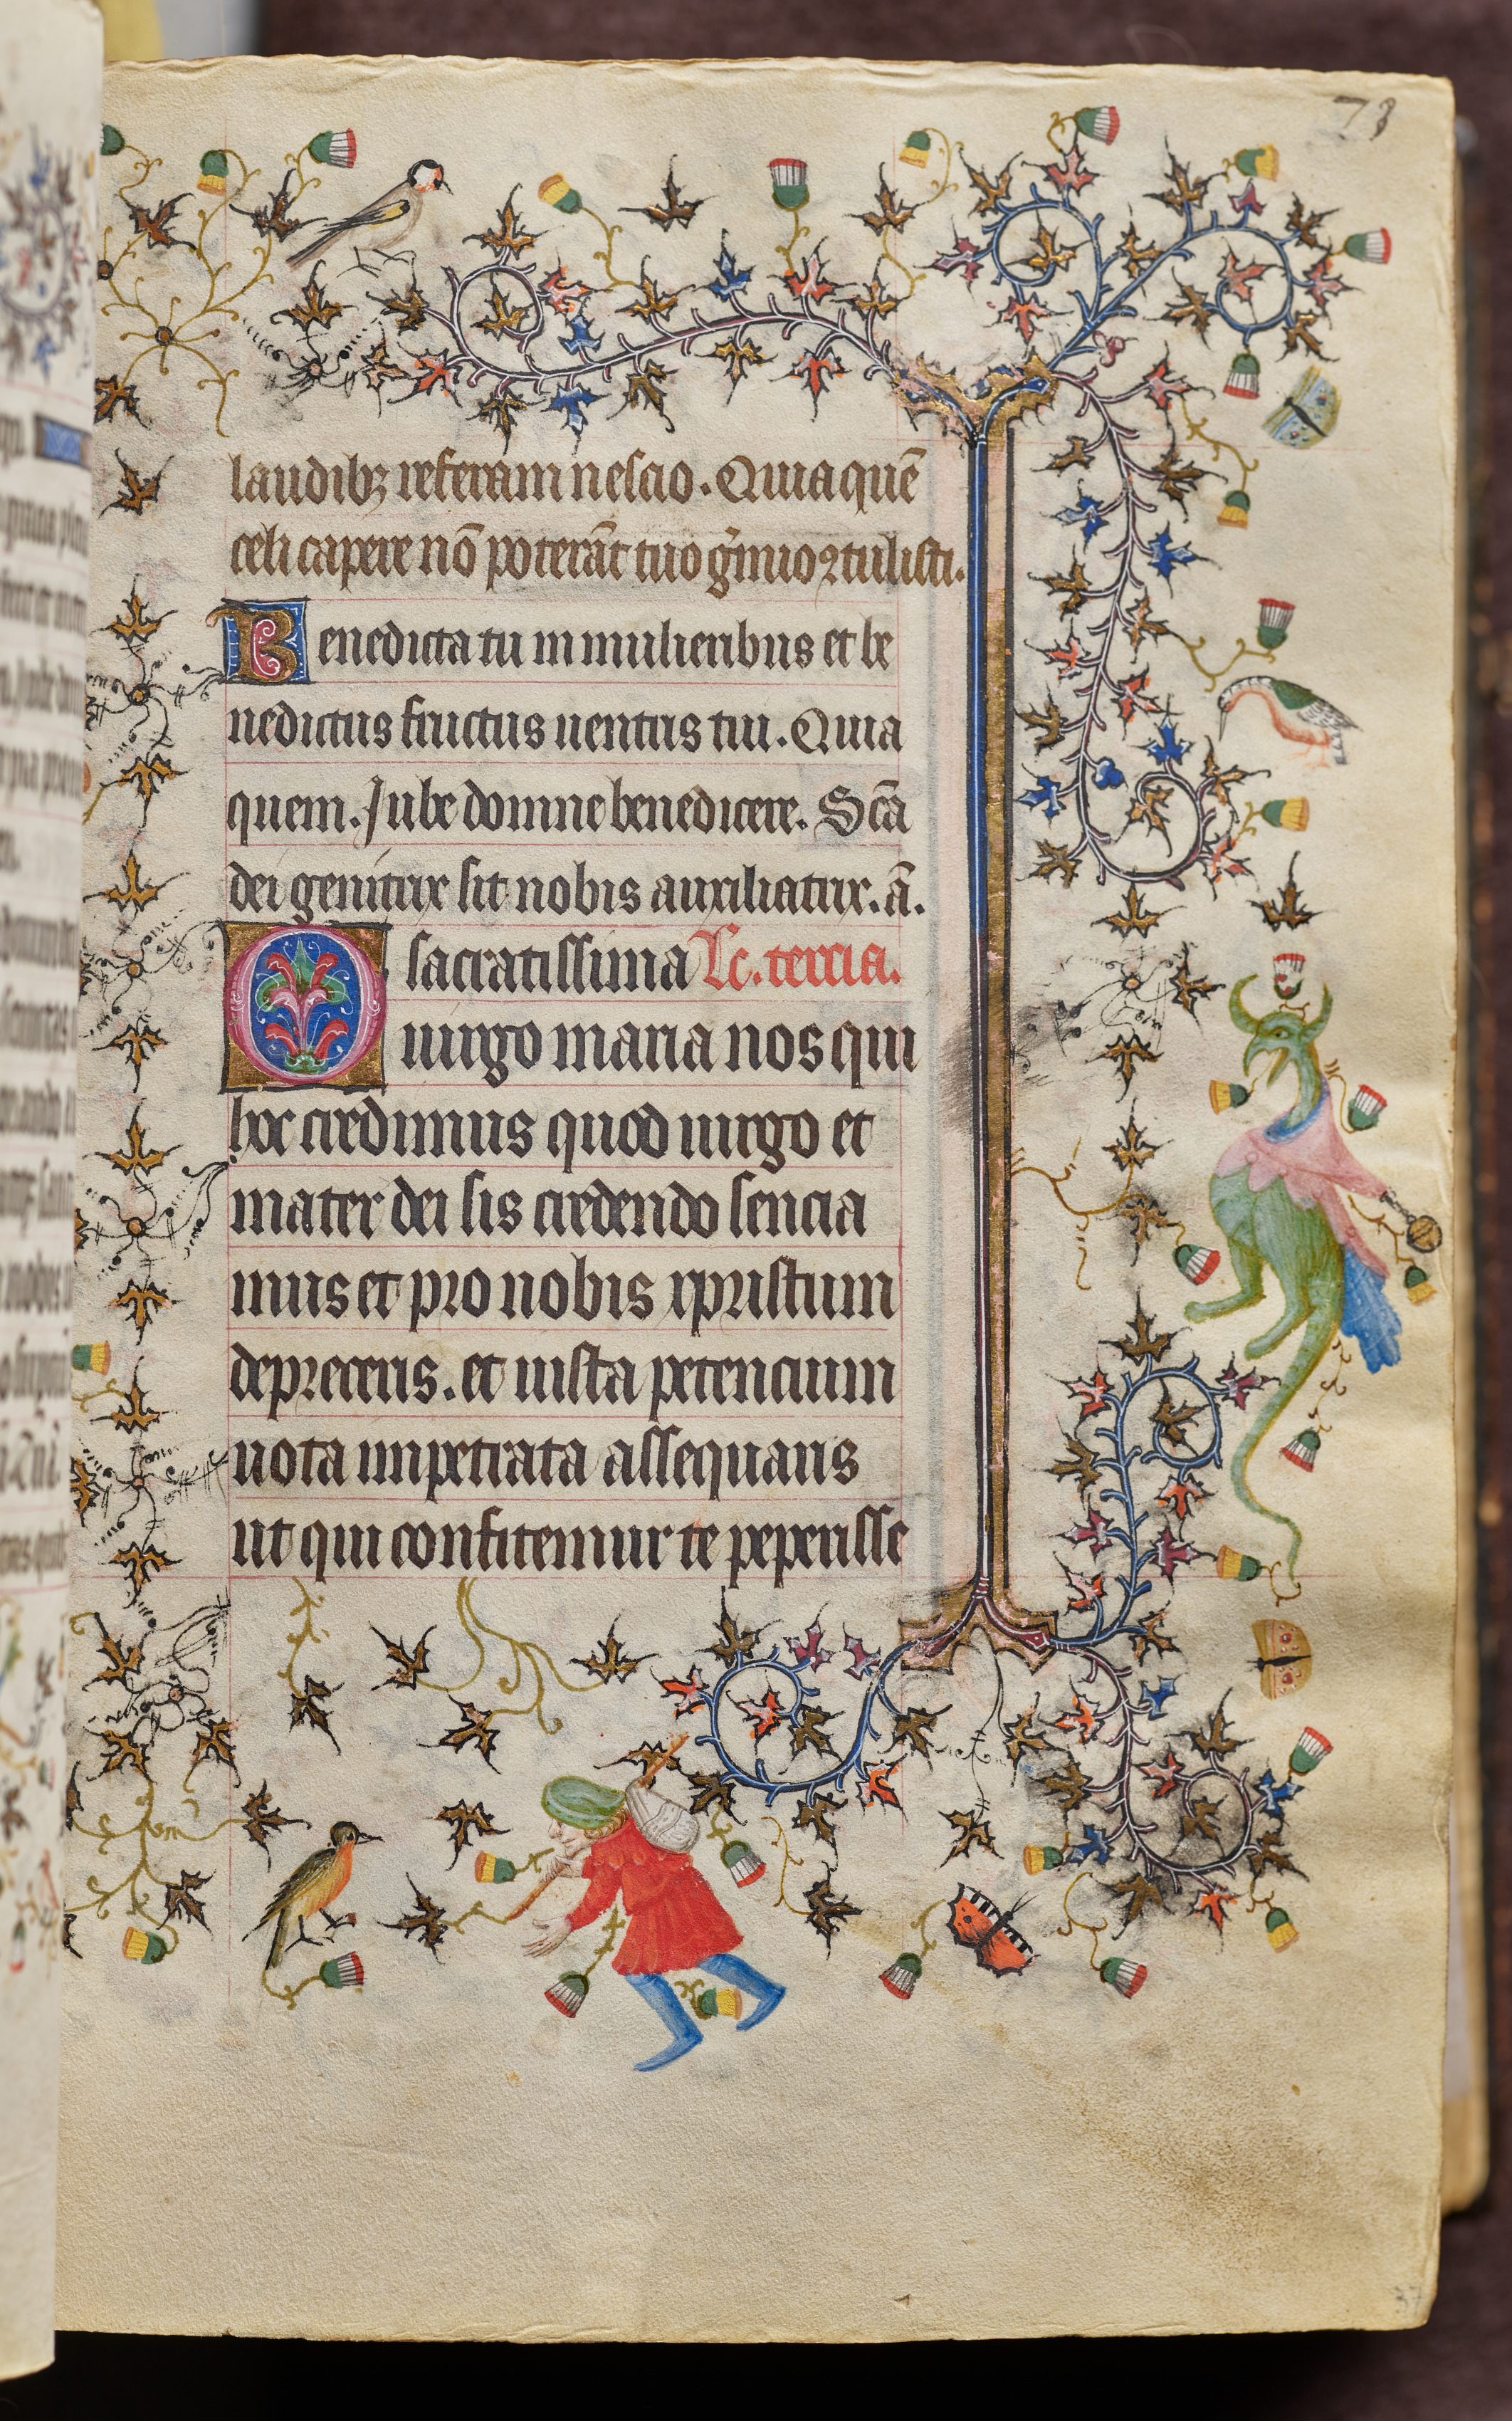 78
laudibꝫ referam nescio. Quia quē
celi capere nō poterāt tuo gͥmio ꝯtulisti.
Benedicta tu in mulieribus et be
nedictus fructus uentris tui. Quia
quem. Jube domne benedicere. Scā
dei genitrix sit nobis auxiliatrix. ā.
O sacratissima Lc. tercia.
uirgo maria nos qui
hoc credimus quod uirgo et
mater dei sis credendo sencia
mus et pro nobis xpristum
depreceris. et iusta petencium
uota impetrata assequaris
ut qui confitemur te peperisse
37